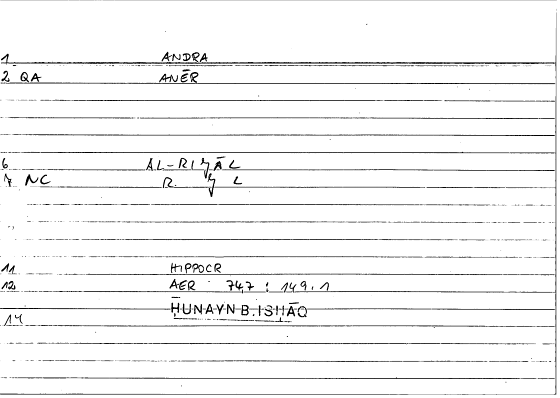 1 ANDRA
2 QA ANĒR
6 AL-RIǦĀL
7 NC R ǧ L
11 HIPPOCR
12 AER 74,7 : 149.1
14 ḤUNAYN B. ISḤĀQ